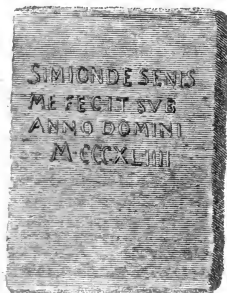 SIMIONDE SENIS
ME FECIT SVB
ANNO DOMINI
M·CCCXLIIII